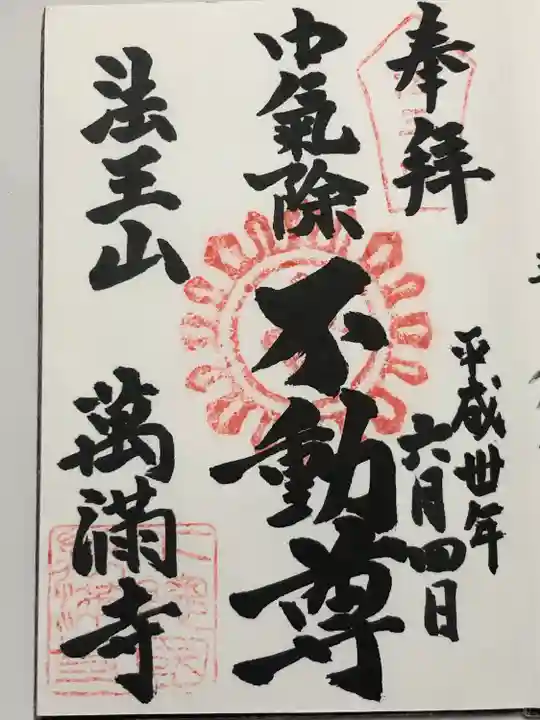 奉拜
平成丗年
六月四日
中氣除
不動尊
法王山
萬満寺